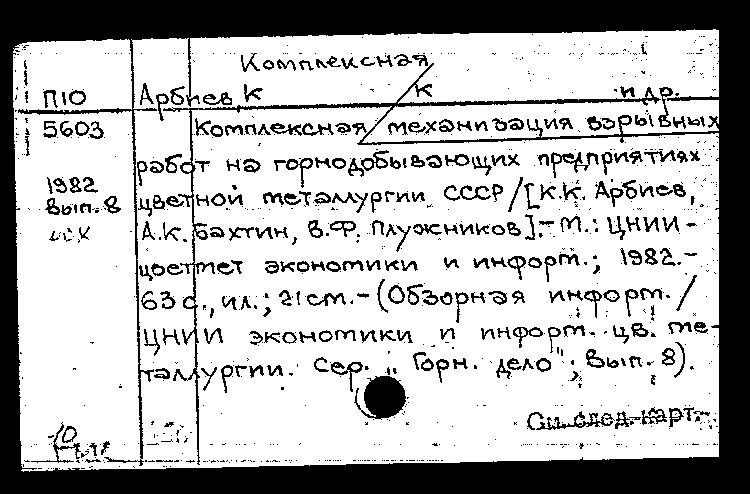 Комплексная
П10 Арбиев, К К и др.
5603 Комплексная механизация взрывных
работ на горнодобывающих предприятиях
1982 цветной металлургии СССР / [К.К. Арбиев,
Вып. 8
А.К. Бахтин, В.Ф. Плужников]. - М.: ЦНИИ-
цветмет экономики и информ.; 1982. -
63 с., ил.; 21 см. - (Обзорная информ. /
ЦНИИ экономики и информ. цв. ме-
таллургии. Сер. „Горн. дело"; Вып. 8).
См. след. карт.